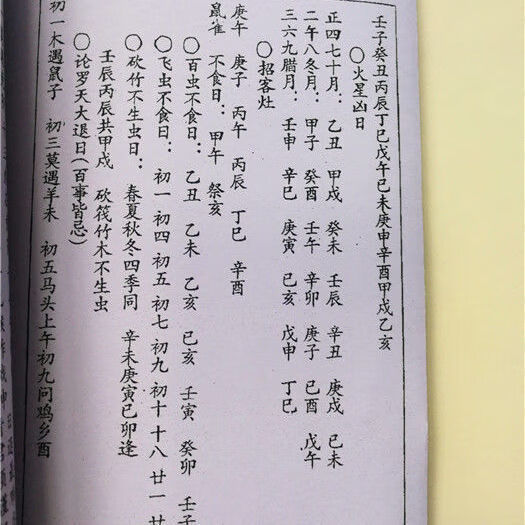 壬子癸丑丙辰丁巳戊午己未庚申辛酉甲戌乙亥
○火星凶日
正四七十月： 乙丑 甲戌 癸未 壬辰 辛丑 庚戌 己未
二午八冬月： 甲子 癸酉 壬午 辛卯 庚子 己酉 戊午
三六九腊月： 壬申 辛巳 庚寅 己亥 戊申 丁巳
○招客灶
庚午 庚子 丙午 丙辰 丁巳 辛酉
鼠雀 不食日： 甲午 祭亥
○百虫不食日： 乙丑 乙未 乙亥 己亥 壬寅 癸卯 壬子
○飞虫不食日： 初一 初四 初五 初七 初九 初十 十八 廿一 廿
○砍竹不生虫日： 春夏秋冬四季同 辛未庚寅己卯逢
壬辰丙辰共甲戍 砍筏竹木不生虫
○论罗天大退日(百事皆忌)
初一木遇鼠子 初三莫遇羊未 初五马头上午初九问鸡乡酉